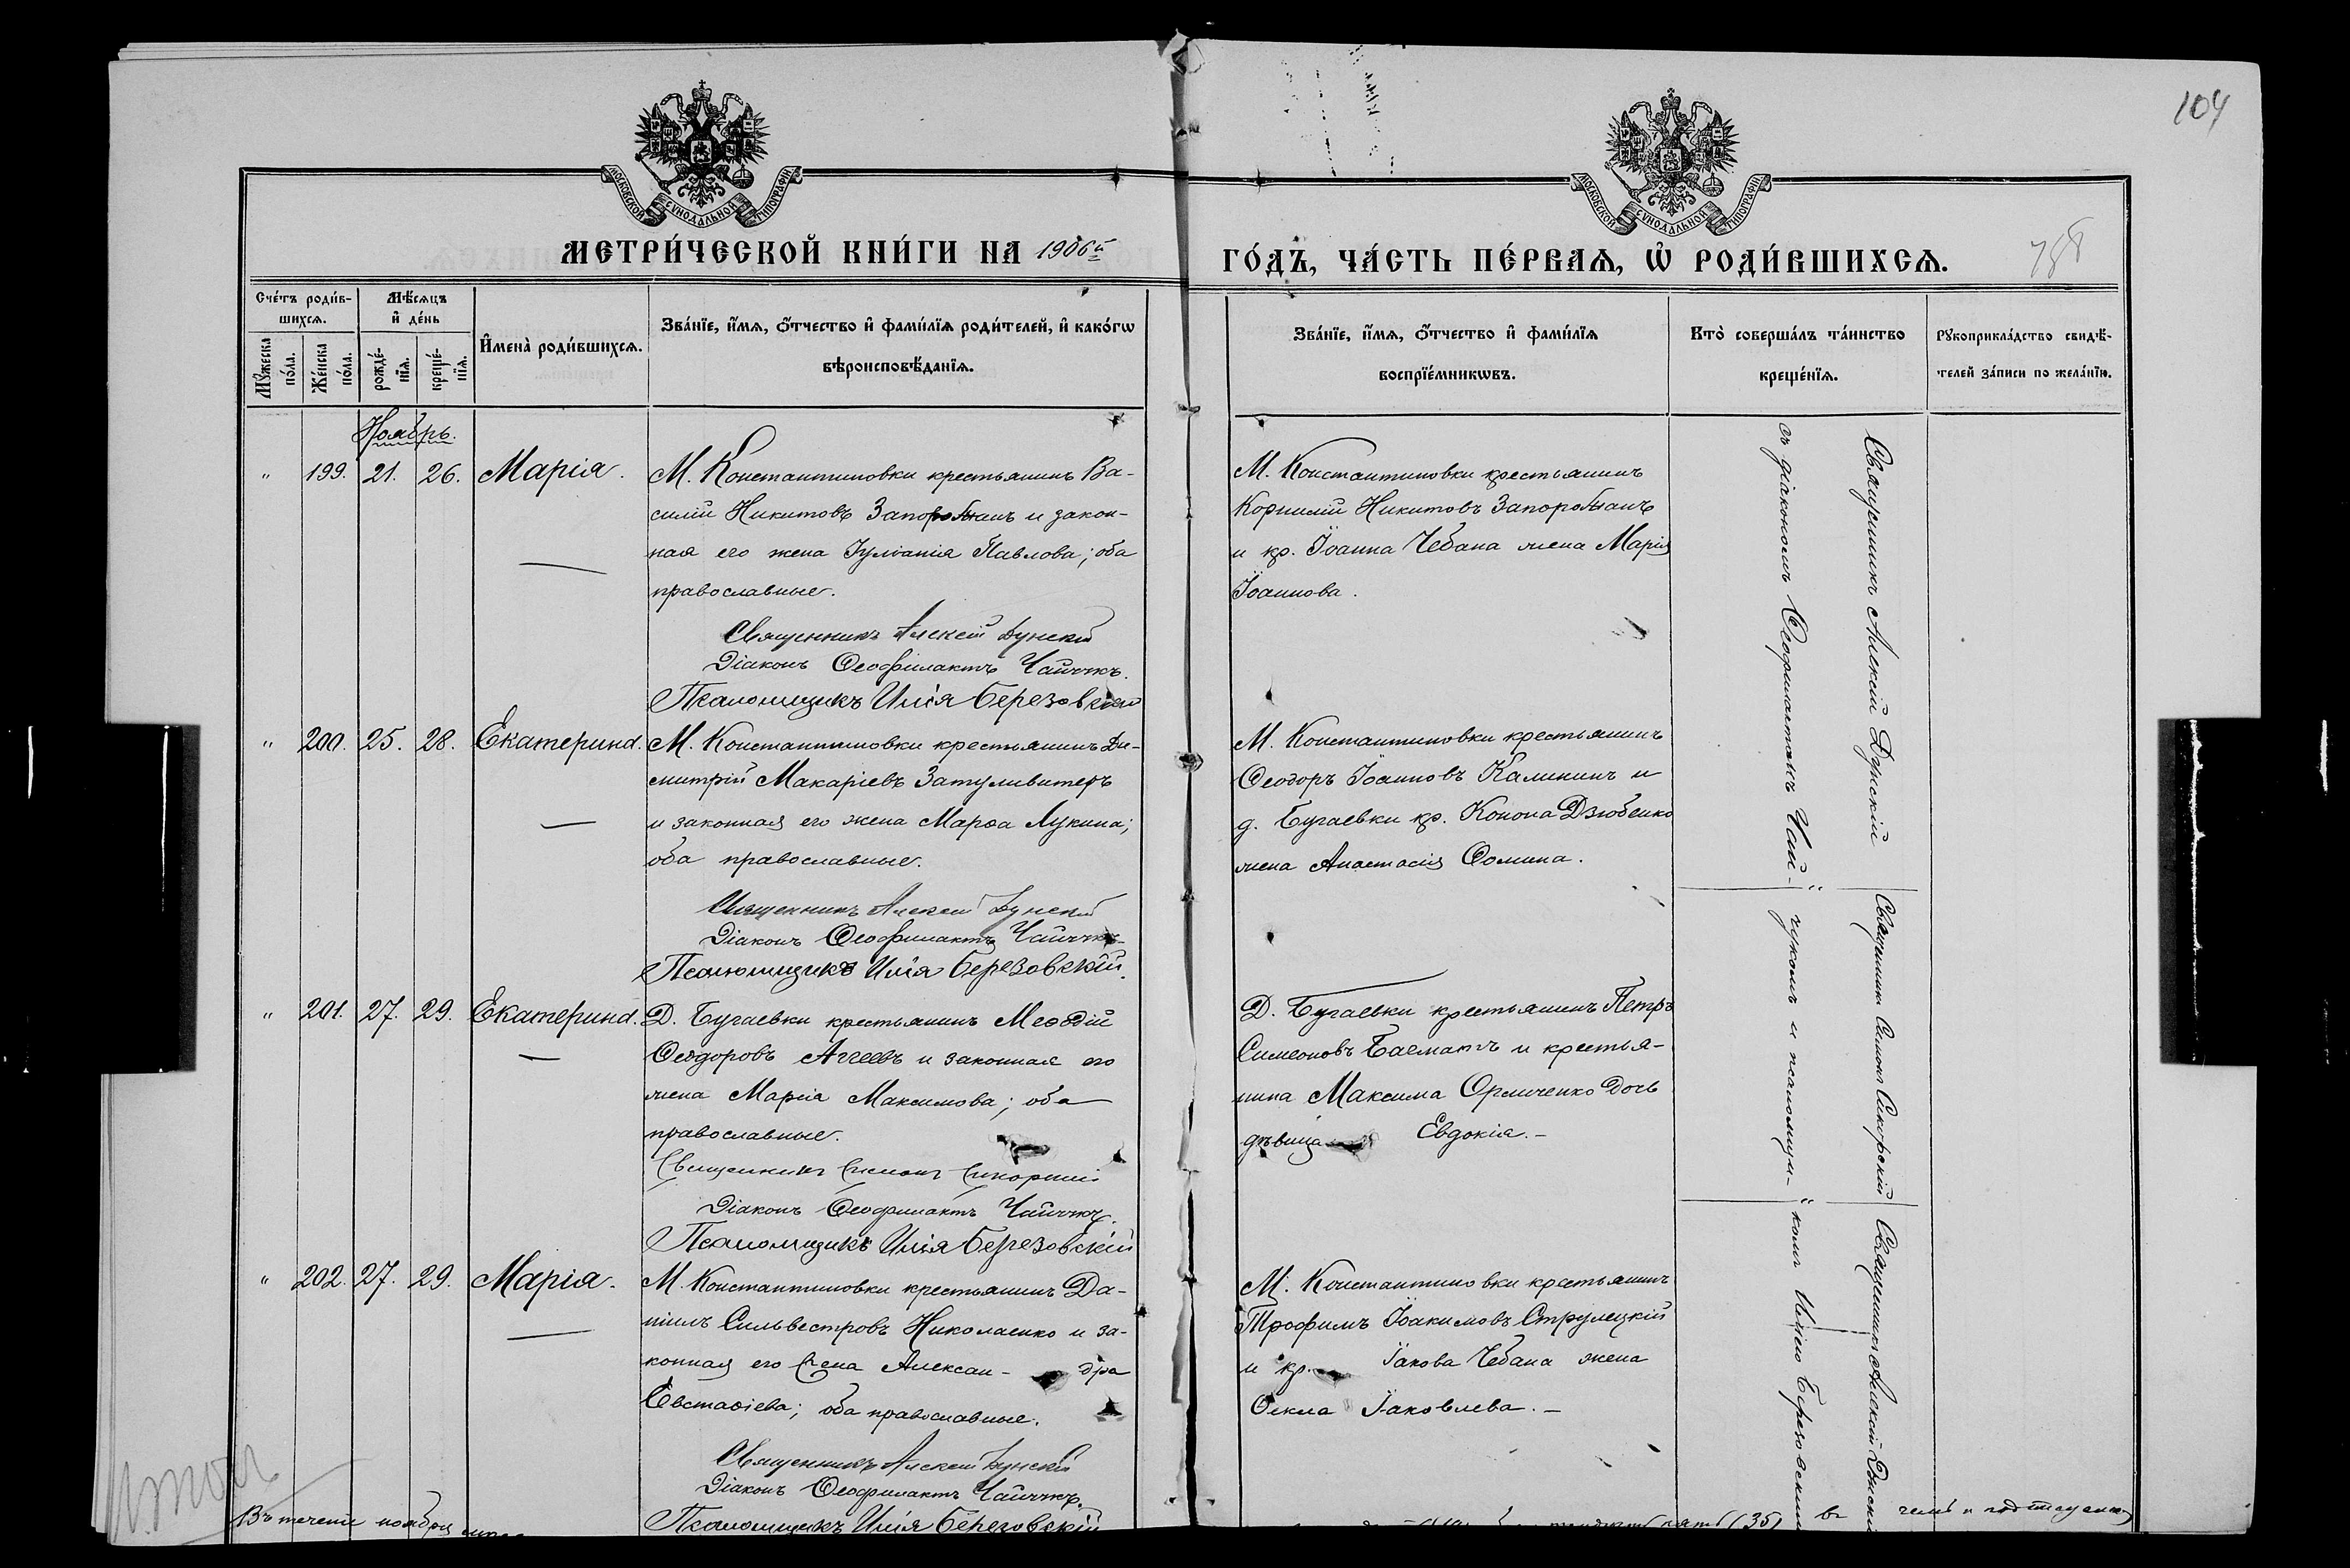 104
МОСКОВСКОЙ СѴНОДАЛЬНОЙ ТИПОГРАФІИ
МОСКОВСКОЙ СѴНОДАЛЬНОЙ ТИПОГРАФІИ
МЕТРИ́ЧЕСКОЙ КНИ́ГИ НА 1906й
ГО́ДЪ, ЧА́СТЬ ПЕ́РВАѦ, Ѡ҆ РОДИ́ВШИХСѦ.
Сче́тъ роди́в-
шихсѧ.
Мѣ́сѧцъ
и҆ де́нь
Мꙋ́жеска
по́ла.
Же́нска
по́ла.
рожде́-
нїѧ.
креще́-
нїѧ.
И҆мена̀ роди́вшихсѧ.
Зва́нїе, и҆́мѧ, ѻ҆́тчество и҆ фами́лїѧ роди́телей, и҆ како́гѡ
вѣроисповѣ́данїѧ.
Зва́нїе, и҆́мѧ, ѻ҆́тчество и҆ фами́лїѧ
воспрїе́мникѡвъ.
Кто̀ соверша́лъ та́инство
креще́нїѧ.
Рꙋкоприкла́дство свидѣ́-
телей за́писи по жела́нїю.
Ноябрь.
" 199. 21. 26. Марія.
М. Константиновки крестьянинъ Ва-
силій Никитовъ Запорожанъ и закон-
ная его жена Іуліанія Павлова; оба
православные.
Священникъ Алексій Дунскій
Діаконъ Ѳеофилактъ Чайчукъ.
Псаломщикъ Илія Березовскій
М. Константиновки крестьянинъ
Корнилій Никитовъ Запорожанъ
и кр. Іоанна Чебана жена Марія
Іоаннова.
" 200. 25. 28. Екатерина.
М. Константиновки крестьянинъ Ди-
митрій Макаріевъ Затуливитеръ
и законная его жена Марѳа Лукина;
оба православные.
Священникъ Алексій Дунскій
Діаконъ Ѳеофилактъ Чайчукъ
Псаломщикъ Илія Березовскій.
М. Константиновки крестьянинъ
Ѳеодоръ Іоанновъ Калининъ и
д. Бугаевки кр. Конона Дзюбенко
жена Анастасія Ѳомина.
" 201. 27. 29. Екатерина.
Д. Бугаевки крестьянинъ Меѳодій
Ѳеодоровъ Аггеевъ и законная его
жена Марія Максимова; оба
православные.
Священникъ Симонъ Сикорскій
Діаконъ Ѳеофилактъ Чайчукъ.
Псаломщикъ Илія Березовскій
Д. Бугаевки крестьянинъ Петръ
Симеоновъ Басматъ и крестья-
нина Максима Орличенко дочь
дѣвица Евдокія.-
" 202. 27. 29. Марія.
М. Константиновки крестьянинъ Да-
ніилъ Сильвестровъ Николаенко и за-
конная его жена Алексан-дра
Евстаѳіева; оба православные.
Священникъ Алексій Дунскій
Діаконъ Ѳеофилактъ Чайчукъ.
Псаломщикъ Илія Березовскій
М. Константиновки крестьянинъ
Трофимъ Іоакимовъ Струлецкій
и кр. Іакова Чебана жена
Ѳекла Іаковлева.-
Священникъ Алексій Дунскій
Священникъ Симонъ Сикорскій
Священникъ Алексій Дунскій
съ діакономъ Ѳеофилактомъ Чай-
чукомъ и псаломщи-
комъ Иліею Березовскимъ
Итого
Въ теченіе ноября
(35) въ чемъ и подписуемся